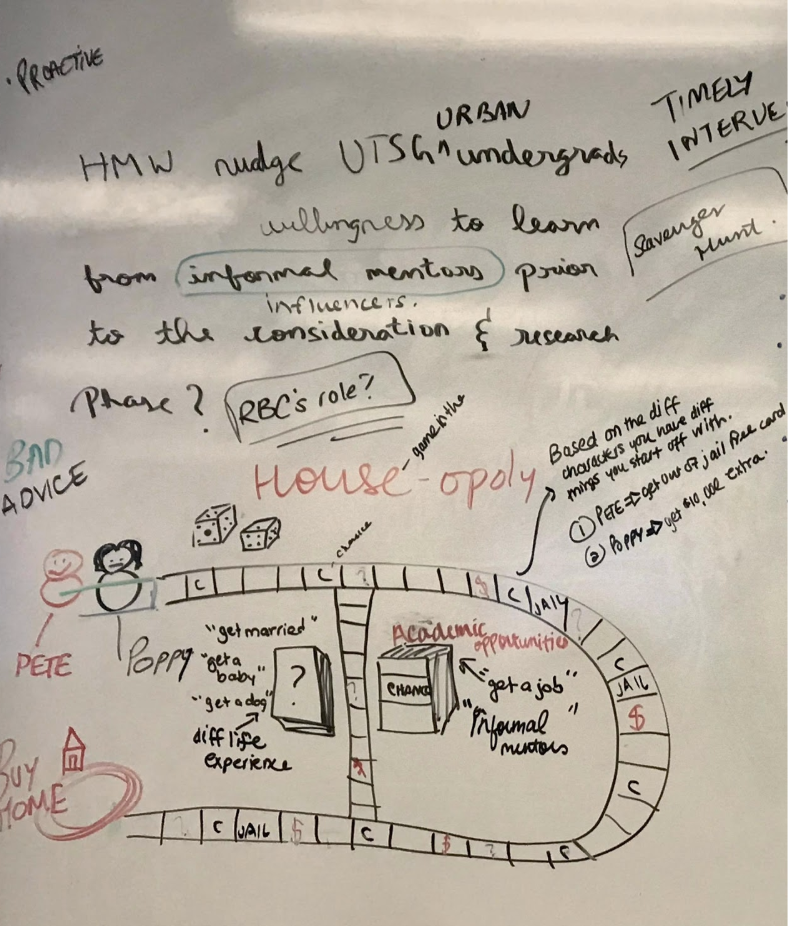 . PROACTIVE
URBAN
TIMELY
INTERVE
HMW nudge UTSG ^ undergrads
willingness to learn
Savenger
Hunt.
from informal mentors prior
influencers.
to the consideration & research
Phase?
RBC's role?
BAD
ADVICE
House-opoly
game in the
Based on the diff
characters you have diff
things you start off with.
① PETE => get out of jail free card
② POPPY => get $10,000 extra.
chance
C C ? $ C JAIL ?
C
JAIL
$
C
PETE
POPPY
"get married"
"get a
baby"
"get a dog"
diff life
experience
?
Academic
opportunities
CHANC
"get a job"
"Informal"
mentors
?
BUY
HOME
? C JAIL $ C $ ? C